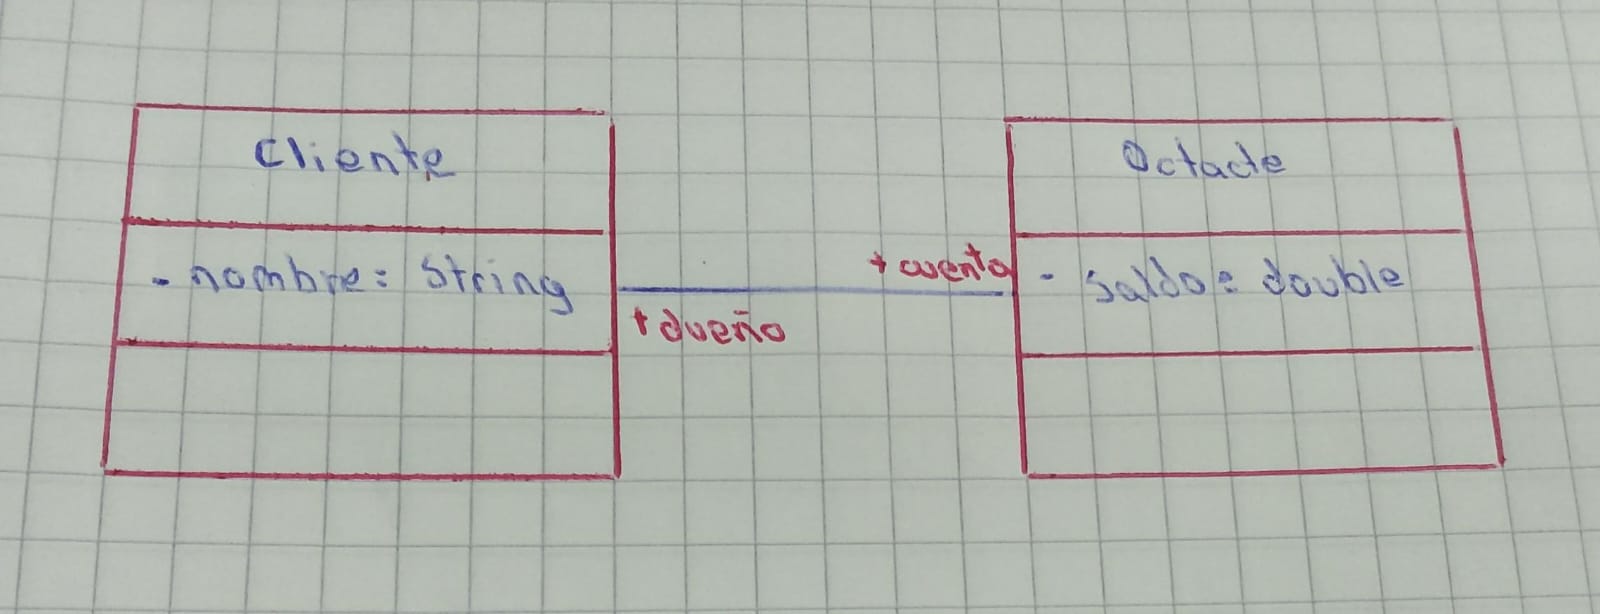 Cliente
- nombre: String
+ dueño
+ cuenta
Octacte
- Saldo: double